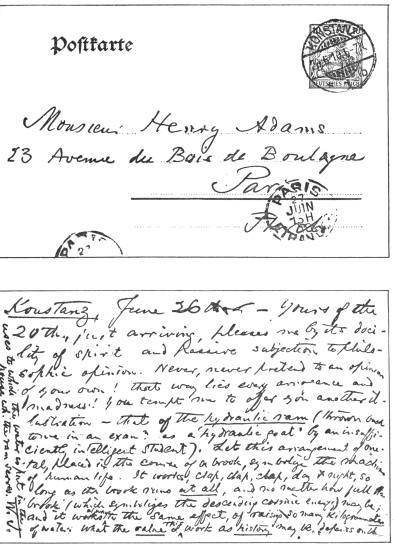 Postkarte
KONSTANZ
Monsieur Henry Adams
23 Avenue du Bois de Boulogne
Paris
PARIS
27
JUIN
ETRANGER
PARIS
Konstanz, June 26 – Yours of the
20th, just arriving, pleases me by its doci-
lity of spirit and passive subjection to philo-
sophic opinion. Never, never pretend to an opinion
of your own! that way lies every annoyance and
madness! You tempt me to offer you another il-
lustration – that of the hydraulic ram (thrown back
to me in an exam as a "hydraulic goat" by an insuffi-
ciently intelligent student). Let this arrangement of me-
tal, placed in the course of a brook, symbolize the machine
of human life. It works, clap, clap, clap, day & night, so
long as the brook runs at all, and no matter how full the
brook (which symbolizes the descending cosmic energy) may be,
and it works to the same effect, of raising so many kilogrammes
of water. What the value of this work as history may be, depends on the
uses to which the water is put in the
house wh. the ram serves. W. J.